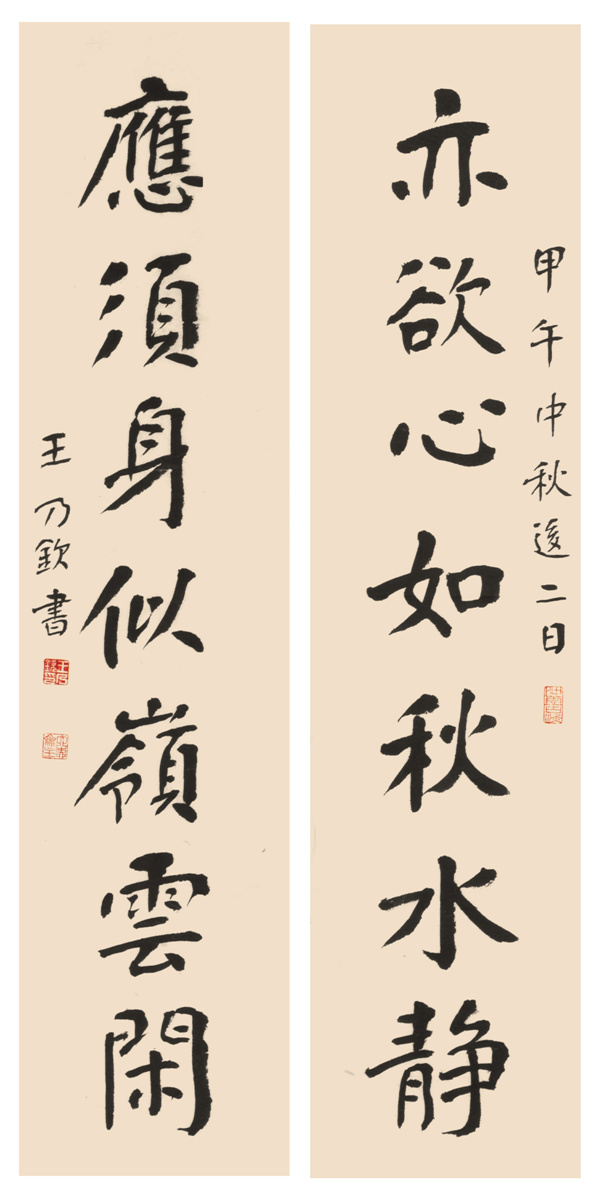 甲午中秋後二日
亦欲心如秋水静
應須身似嶺雲閑
王乃欽書